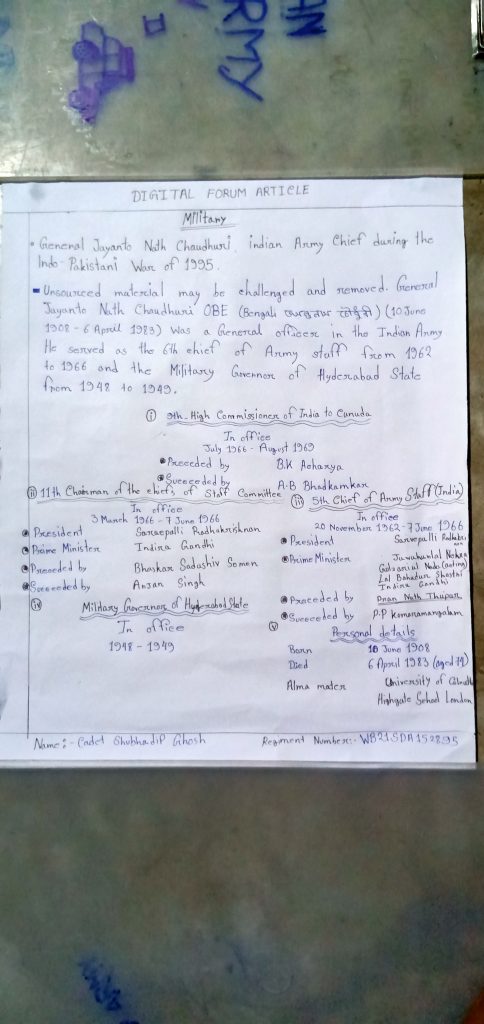 AN
RMY
DIGITAL FORUM ARTICLE
Military
General Jayanto Nath Chaudhuri, indian Army Chief during the
Indo-Pakistani War of 1995.
Unsourced material may be challenged and removed. General
Jayanto Nath Chaudhuri OBE (Bengali) (10 June
1908 - 6 April 1983) Was a General officer in the Indian Army
He served as the 6th chief of Army staff from 1962
to 1966 and the Military Governor of Hyderabad State
from 1948 to 1949.
(i) 9th High Commissioner of India to Canuda
In office
July 1966 - August 1969
Preceded by B.K Acharya
Succeeded by A.B Bhadkamkar
(ii) 11th Chairman of the chiefs of Staff Committee
In office
3 March 1966 - 7 June 1966
President Sarvepalli Radhakrishnan
Prime Minister Indira Gandhi
Preceded by Bhaskar Sadashiv Soman
Succeeded by Arjan Singh
(iii) 5th Chief of Army Staff (India)
In office
20 November 1962 - 7 June 1966
President Sarvepalli
Prime Minister Nehru
Nada (acting)
Lal Bahadur Shastri
Indira Gandhi
Preceded by Pran Nath Thapar
Succeeded by P.P Komaramangalam
(iv) Military Governor of Hyderabad State
In office
1948 - 1949
(v) Personal details
Born 10 June 1908
Died 6 April 1983 (aged
Alma mater University of
Highgate School London
Name:- Cadet Shubhadip Ghosh Regiment Number:- WB21SDA152895